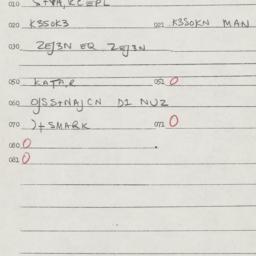 010
020 K3SOK3 021 K3SOKN MAN
030 ZEJ3N EQ ZEJ3N
050 KATA,R 051 0
060 OJSS+NAJCN D1 NUZ
070 )+SMARK 071 0
080 0
081 0